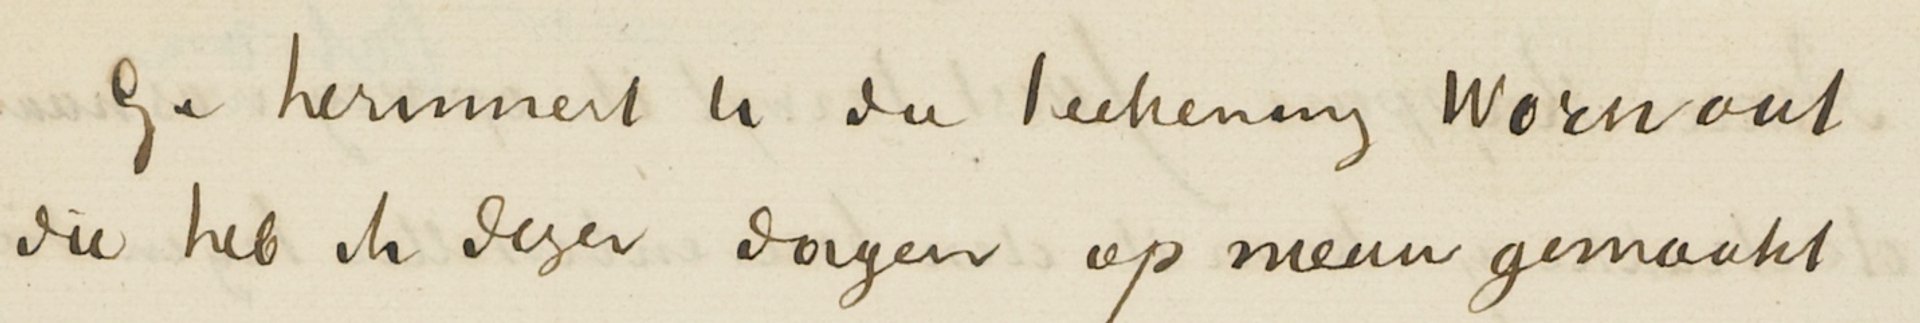 Ge herinnert U die teekening Worn out
die heb ik dezer dagen op nieuw gemaakt